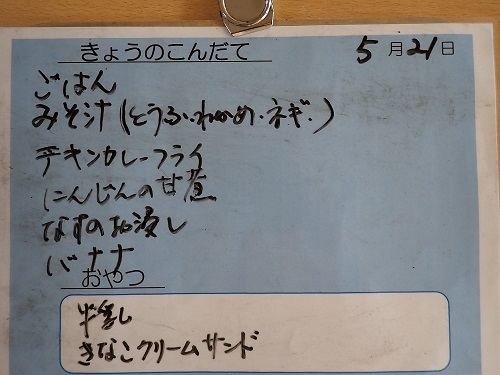 きょうのこんだて 5月21日
ごはん
みそ汁(とうふ・わかめ・ネギ・)
チキンカレーフライ
にんじんの甘煮
なすのお浸し
バナナ
おやつ
牛乳
きなこクリームサンド